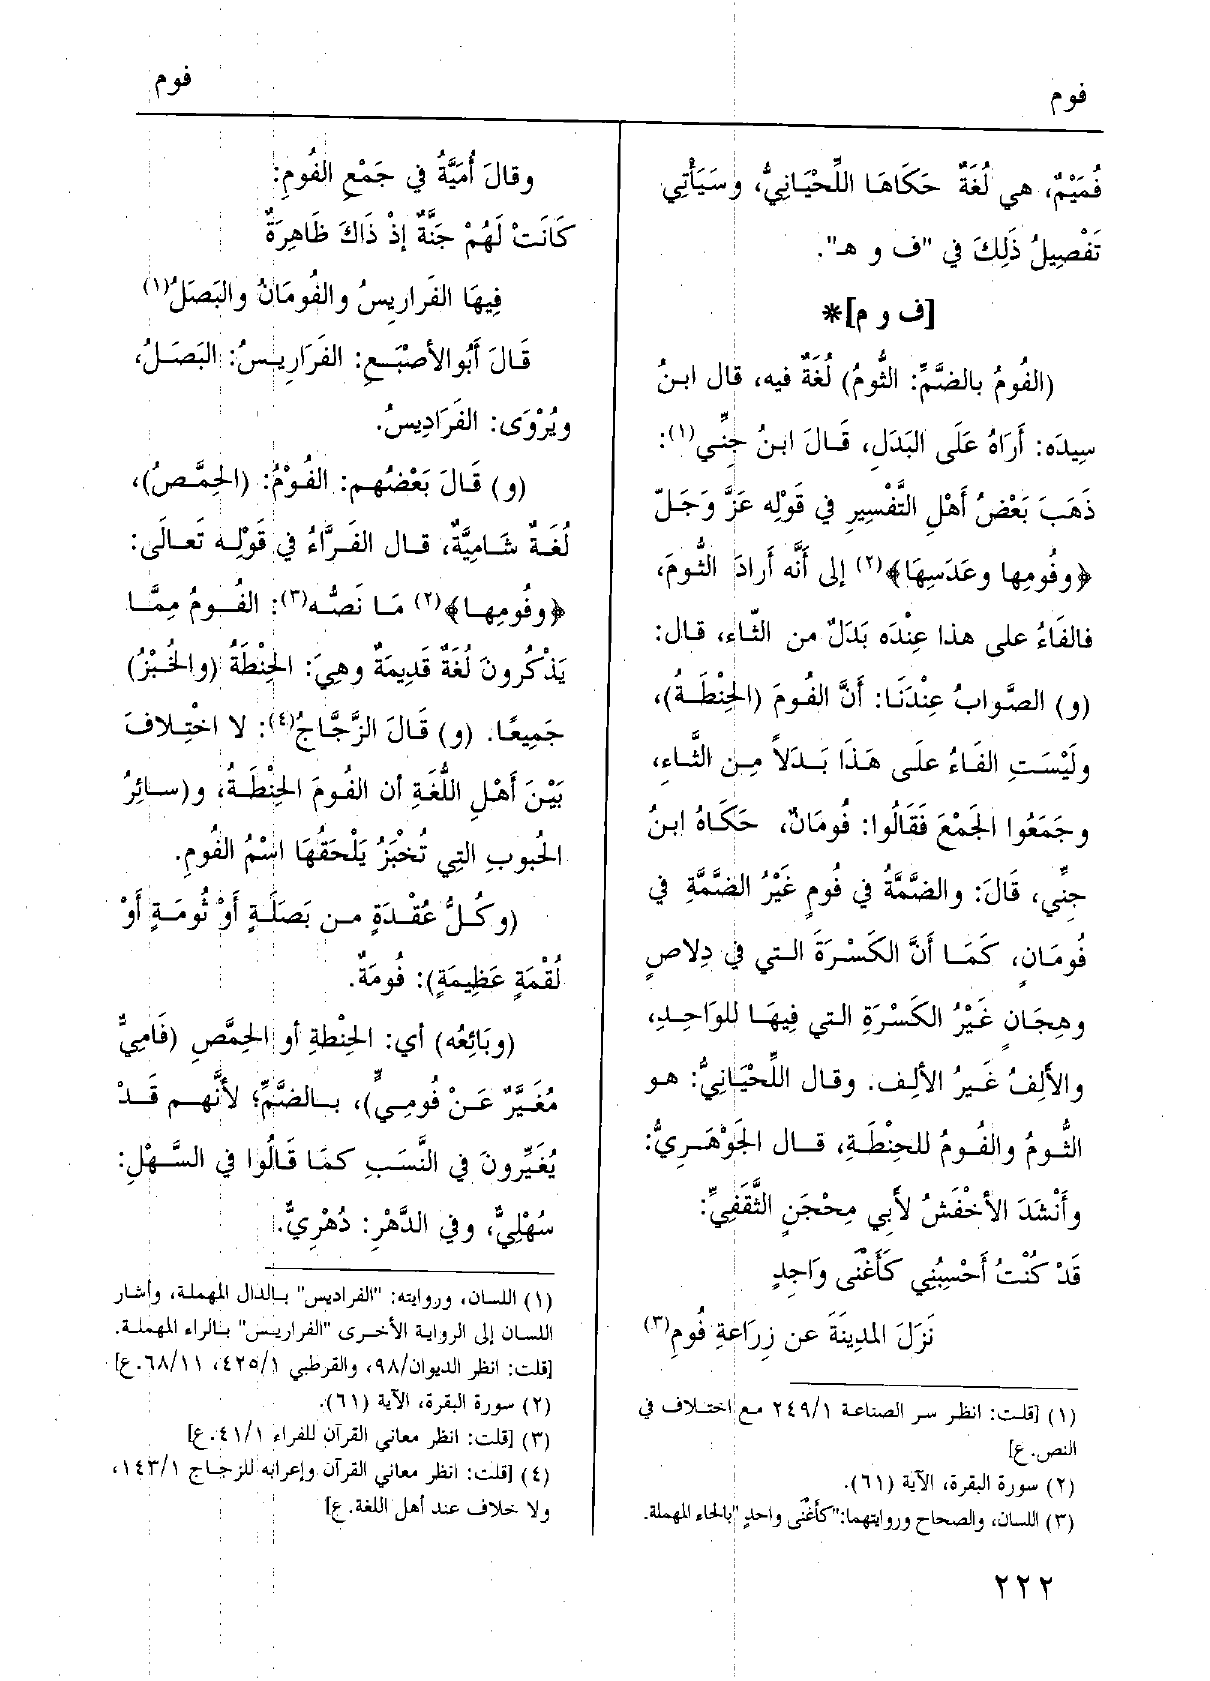 فوم
فوم
فُمَيْمٌ، هي لُغَةٌ حَكَاهَا اللِّحْيَانِيُّ، وسَيَأْتِي
تَفْصِيلُ ذَلِكَ في "ف و هـ".
[ف و م]*
(الفُومُ بالضَّمِّ: الثُّومُ) لُغَةٌ فيه، قال ابنُ
سِيدَه: أَرَاهُ عَلَى البَدَلِ، قَالَ ابنُ جِنِّي(١):
ذَهَبَ بَعْضُ أَهْلِ التَّفْسِيرِ في قَوْلِه عَزَّ وَجَلّ
﴿وفُومِها وعَدَسِهَا﴾(٢) إلى أَنَّه أَرادَ الثُّومَ،
فالفَاءُ على هذا عِنْدَه بَدَلٌ من الثّاء، قال:
(و) الصَّوابُ عِنْدَنَا: أَنَّ الفُومَ (الحِنْطَةُ)،
ولَيْسَتِ الفَاءُ علَى هَذَا بَدَلاً مِن الثَّاءِ،
وجَمَعُوا الجَمْعَ فَقَالُوا: فُومَانٌ، حَكَاهُ ابنُ
جِنِّي، قَالَ: والضَّمَّةُ في فُومٍ غَيْرُ الضَّمَّةِ في
فُومَانٍ، كَمَا أَنَّ الكَسْرَةَ التي في دِلاصٍ
وهِجَانٍ غَيْرُ الكَسْرَةِ التي فِيهَا للوَاحِدِ،
والأَلِفُ غَيرُ الأَلِف. وقال اللِّحْيَانِيُّ: هو
الثُّومُ والفُومُ للحِنْطَةِ، قال الجَوْهَرِيُّ:
وأَنْشَدَ الأَخْفَشُ لأَبِي مِحْجَنٍ الثَّقَفِيِّ:
قَدْ كُنْتُ أَحْسِبُنِي كَأَغْنَى وَاجِدٍ
نَزَلَ المدِينَةَ عن زِرَاعةِ فُومِ(٣)
(١) [قلت: انظر سر الصناعة ٢٤٩/١ مع اختلاف في
النص.ع]
(٢) سورة البقرة، الآية (٦١).
(٣) اللسان، والصحاح وروايتهما:"كأَغْنَى واحدٍ"بالحاء المهملة.
وقالَ أُمَيَّةُ في جَمْعِ الفُومِ:
كَانَتْ لَهُمْ جَنَّةٌ إذْ ذَاكَ ظَاهِرَةٌ
فِيهَا الفَرارِيسُ والفُومَانُ والبَصَلُ(١)
قَالَ أَبُو الأصْبَعِ: الفَرَارِيسُ: البَصَلُ،
ويُرْوَى: الفَرَادِيسُ.
(و) قَالَ بَعْضُهم: الفُوْمُ: (الحِمَّصُ)،
لُغَةٌ شَامِيَّةٌ، قال الفَرَّاءُ في قَوْلِه تَعالَى:
﴿وفُومِها﴾(٢) مَا نَصُّه(٣): الفُومُ مِمَّا
يَذْكُرونَ لُغَةٌ قَدِيمَةٌ وهِيَ: الحِنْطَةُ (والخُبْزُ)
جَمِيعًا. (و) قَالَ الزَّجَّاجُ(٤): لا اخْتِلافَ
بَيْنَ أَهْلِ اللُّغَةِ أن الفُومَ الحِنْطَةُ، و(سائِرُ
الحُبوبِ التِي تُخْبَزُ يَلْحَقُهَا اسْمُ الفُومِ.
(وكُلُّ عُقْدَةٍ من بَصَلَةٍ أَوْ ثُومَةٍ أَوْ
لُقْمَةٍ عَظِيمَةٍ): فُومَةٌ.
(وبَائِعُه) أي: الحِنْطةِ أو الحِمَّصِ (فَامِيٌّ
مُغَيَّرٌ عَنْ فُومِيٍّ)، بالضَّمِّ؛ لأَنَّهم قَدْ
يُغَيِّرونَ في النَّسَبِ كمَا قَالُوا في السَّهْلِ:
سُهْلِيٌّ، وفي الدَّهْرِ: دُهْرِيٌّ.
(١) اللسان، وروايته: "الفراديس" بالدال المهملة، وأشار
اللسان إلى الرواية الأخرى "الفراريس" بالراء المهملة.
[قلت: انظر الديوان/٩٨، والقرطبي ٤٢٥/١، ٦٨/١١.ع]
(٢) سورة البقرة، الآية (٦١).
(٣) [قلت: انظر معاني القرآن للفراء ٤١/١.ع]
(٤) [قلت: انظر معاني القرآن وإعرابه للزجاج ١٤٣/١،
ولا خلاف عند أهل اللغة.ع]
٢٢٢